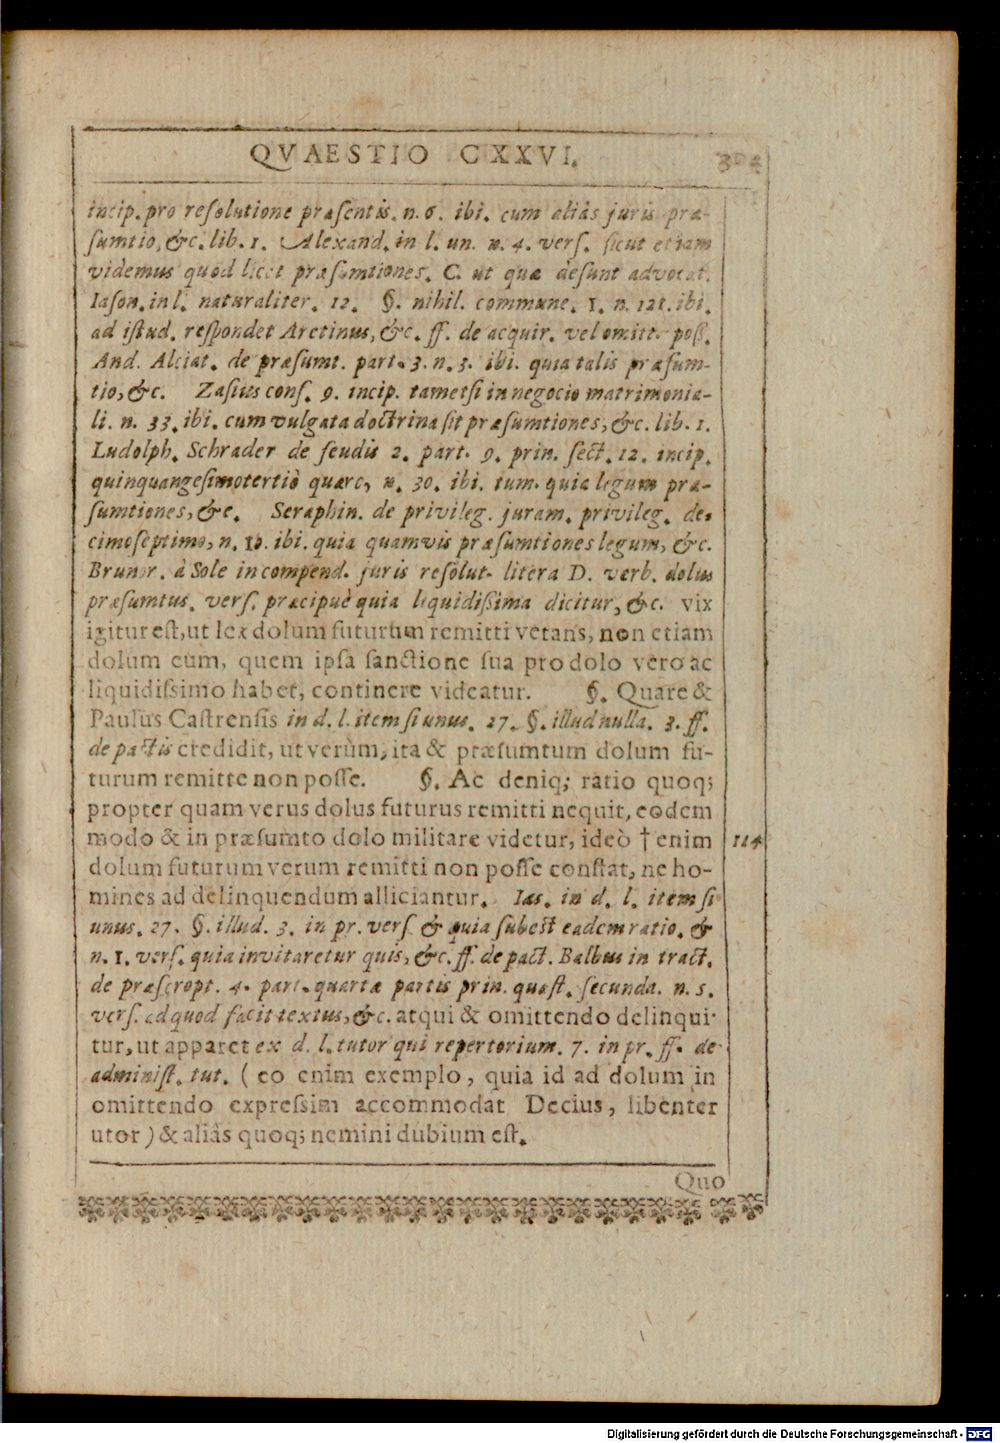 QVAESTIO CXXVI.
incip. pro resolutione præsentis. n. 6. ibi. cum aliàs juris præ-
sumtio, &c. lib. 1. Alexand. in l. un. n. 4. vers. sicut etiam
videmus quod licet præsumtiones. C. ut quæ desunt advocat.
Iason. in l. naturaliter. 12. §. nihil. commune. 1. n. 121. ibi.
ad istud. respondet Aretinus, &c. ff. de acquir. vel omitt. poss.
And. Alciat. de præsumt. part. 3. n. 3. ibi. quia talis præsum-
tio, &c. Zasius cons. 9. incip. tametsi in negocio matrimonia-
li. n. 33. ibi. cum vulgata doctrina sit præsumtiones, &c. lib. 1.
Ludolph. Schrader de feudis 2. part. 9. prin. sect. 12. incip.
quinquangesimotertiò quærc, n. 30. ibi. tum. quia legum præ-
sumtiones, &c. Seraphin. de privileg. juram. privileg. de-
cimoseptimo, n. 10. ibi. quia quamvis præsumtiones legum, &c.
Brunor. à Sole in compend. juris resolut. litera D. verb. dolus
præsumtus. vers. præcipuè quia liquidissima dicitur, &c. vix
igitur est, ut lex dolum futurum remitti vetans, non etiam
dolum eum, quem ipsa sanctione sua pro dolo vero ac
liquidissimo habet, continere videatur. §. Quare &
Paulus Castrensis in d. l. item si unus. 27. §. illud nulla. 3. ff.
de pactis credidit, ut verùm, ita & præsumtum dolum fu-
turum remitte non posse. §. Ac deniq; ratio quoq;
propter quam verus dolus futurus remitti nequit, eodem
modo & in præsumto dolo militare videtur, ideò † enim 114
dolum futurum verum remitti non posse constat, ne ho-
mines ad delinquendum alliciantur. Ias. in d. l. item si
unus. 27. §. illud. 3. in pr. vers. & quia subest eadem ratio. &
n. 1. vers. quia invitaretur quis, &c. ff. de pact. Balbus in tract.
de præscropt. 4. part. quartæ partis prin. quæst. secunda. n. 5.
vers. ad quod facit textus, &c. atqui & omittendo delinqui-
tur, ut apparet ex d. l. tutor qui repertorium. 7. in pr. ff. de
administ. tut. ( eo enim exemplo, quia id ad dolum in
omittendo expressim accommodat Decius, libenter
utor ) & aliàs quoq; nemini dubium est.
Quo
Digitalisierung gefördert durch die Deutsche Forschungsgemeinschaft - DFG